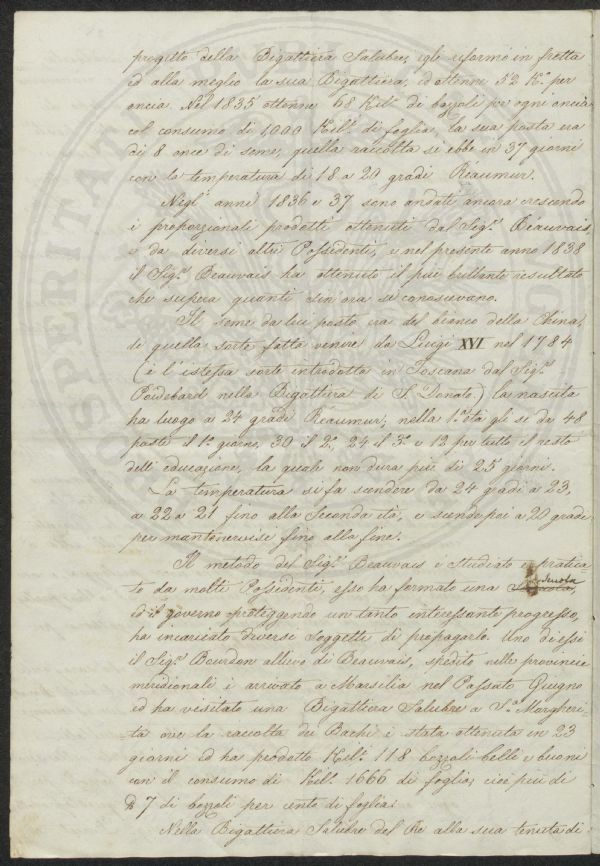 progetto della Bigattiera Salubre, egli riformò in fretta
ed alla meglio la sua Bigattiera, ed ottenne 52 K.º per
oncia. Nel 1835 ottenne 68 Kil.ⁱ di bozzoli per ogni oncia
col consumo di 1,000 Kil.ⁱ di foglia, la sua posta era
di 8 once di seme, quella raccolta si ebbe in 37 giorni
con la temperatura di 18 a 20 gradi Réaumur.
Negl' anni 1836 e 37 sono andati ancora crescendo
i proporzionali prodotti ottenuti dal Sig.ʳ Beauvais,
e da diversi altri Possidenti, e nel presente anno 1838
il Sig.ʳ Beauvais ha ottenuto il più brillante resultato
che supera quanti sin ora si conoscevano.
Il seme da lui posto era del bianco della China,
di quella sorte fatta venire da Luigi XVI nel 1784
(è l'istessa sorte introdotta in Toscana dal Sig.ʳ
Poidebard nella Bigattiera di S. Donato.) la nascita
ha luogo a 24 gradi Reaumur; nella 1.ª età gli si da 48
pasti il 1.º giorno, 30 il 2.º 24 il 3.º e 12 per tutto il resto
dell' educazione, la quale non dura più di 25 giorni.
La temperatura si fa scendere da 24 gradi a 23,
a 22 a 21 fino alla Seconda età, e scende poi a 20 gradi
per mantenervisi fino alla fine.
Il metodo del Sig.ʳ Beauvais è studiato e pratica-
to da molti Possidenti, esso ha formato una Scuola
ed il governo proteggendo un tanto interessante progresso,
ha incaricato diversi Soggetti di propagarlo. Uno di essi
il Sig.ʳ Bourdon allievo di Beauvais, spedito nelle provincie
meridionali è arrivato a Marsilia nel Passato Giugno
ed ha visitato una Bigattiera Salubre a S.ª Margheri-
ta ove la raccolta dei Bachi è stata ottenuta in 23
giorni ed ha prodotto Kil.ⁱ 118 bozzoli belli e buoni
con il consumo di Kil.ⁱ 1666 di foglia, cioè più di
7 di bozzoli per cento di foglia.
Nella Bigattiera Salubre del Re alla sua tenuta di